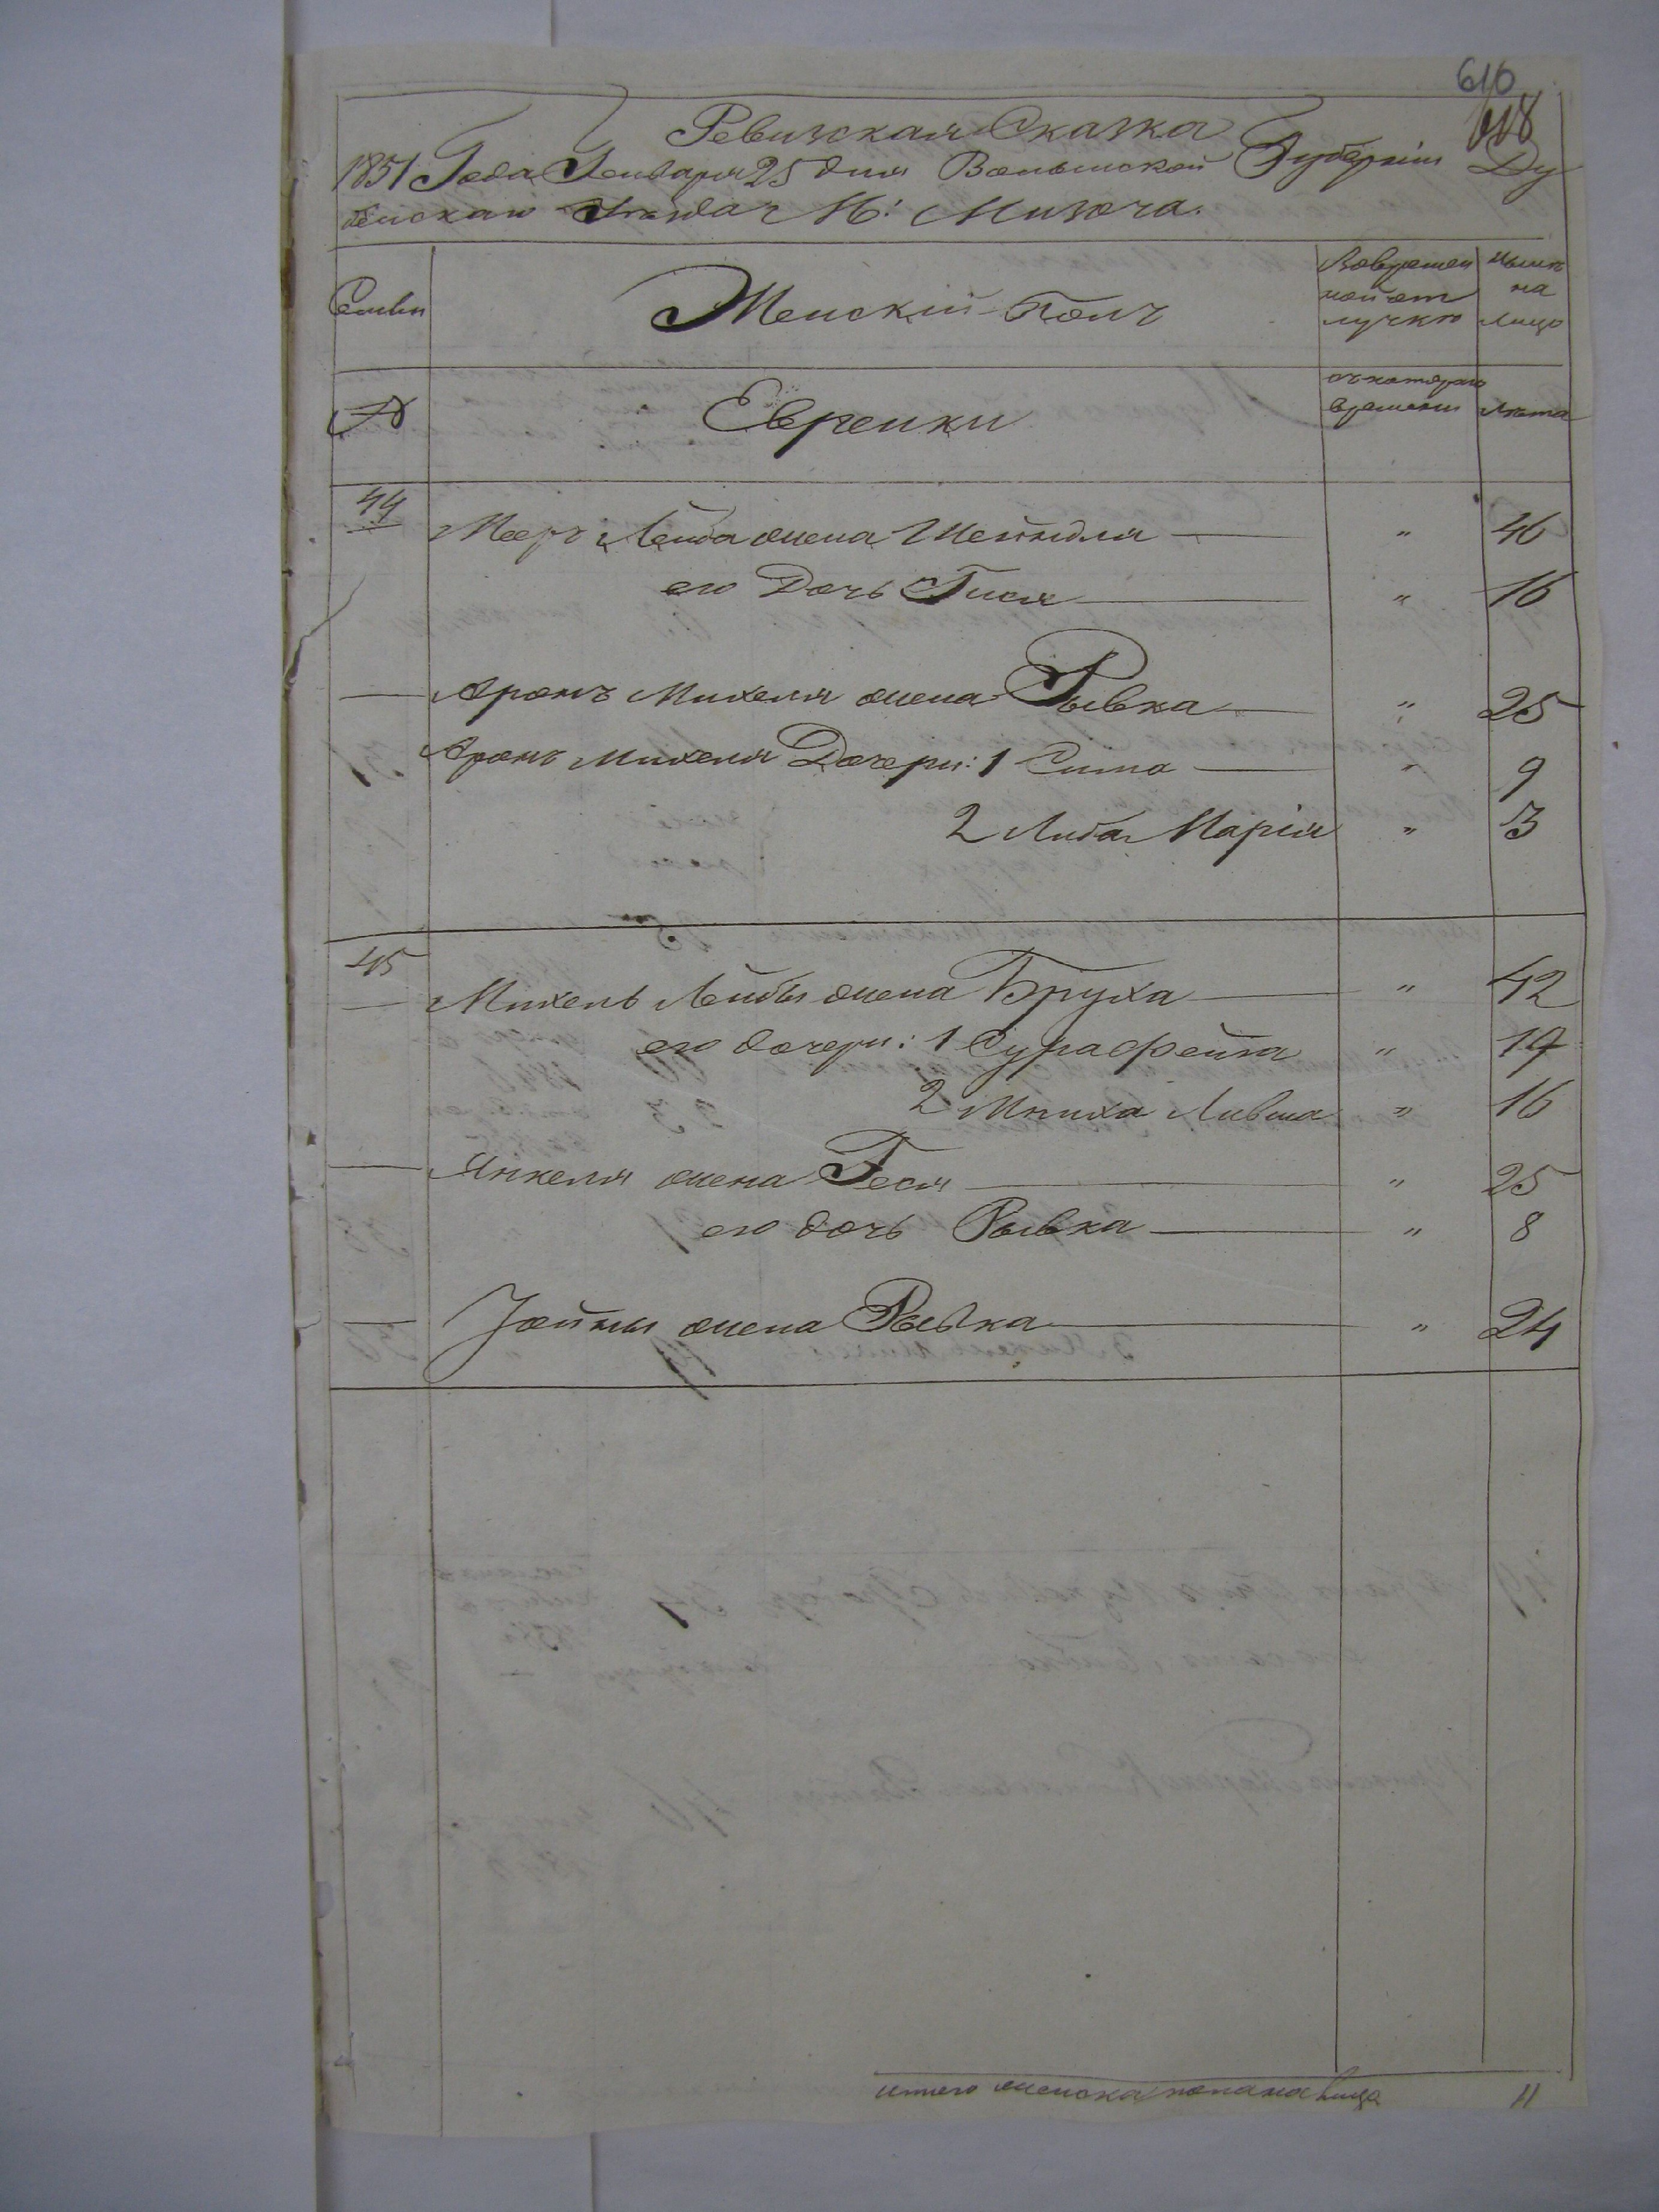 610
118
Ревизская Сказка
1851 Года Генваря 25 дня Волынской Губернии Ду
бенскаго Уезда М: Мизоча.
Семьи
Женский Полъ
Вовремен
ной от
лучке
Ныне
на
лицо
№
Евреики
съ котораго
времени
Лета
44
Меер Лейба жена Шейндля — " 46
его Дочь Гися — " 16
— Аронъ Михеля жена Рывка — " 25
Аронъ Михеля Дочери: 1 Сима — " 9
2 Либа Марiя " 3
45
— Михель Лейбы жена Бруха — " 42
его дочери: 1 Сура Фейга " 19
2 Лившa " 16
— Янкеля жена Геся — " 25
его дочь Рывка — " 8
— Iойны жена Рывка — " 24
итого женска пола на лицо 11